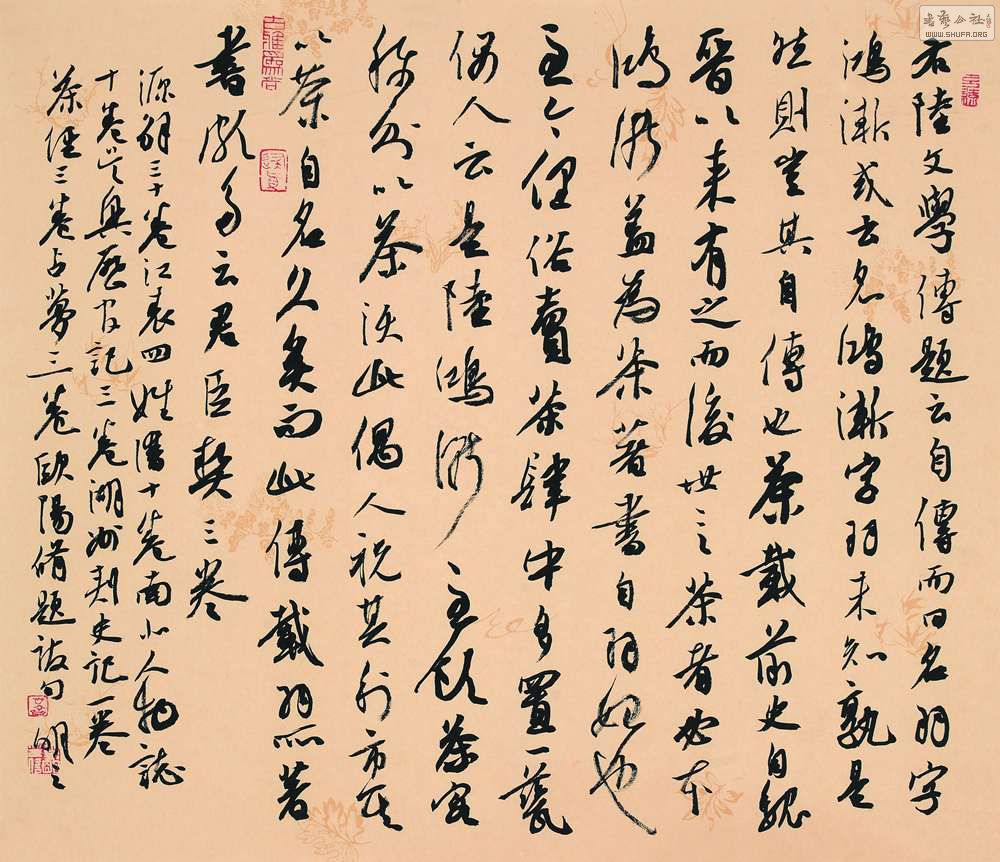 右陸文學傳題云自傳而曰名羽字
鴻漸或云名鴻漸字羽未知孰是
然則豈其自傳也茶載前史自魏
晉以來有之而後世言茶者必本
鴻漸蓋為茶著書自羽始也
至今俚俗賣茶肆中多置一甆
偶人云是陸鴻漸至飲茶客
稀則以茶沃此偶人祝其利市其
以茶自名久矣而此傳載羽所著
書頗多云君臣契三卷
源解三十卷江表四姓譜十卷南北人物誌
十卷吳興歷官記三卷湖州刺史記一卷
茶經三卷占夢三卷歐陽脩題跋句
書藝公社
WWW.SHUFA.ORG